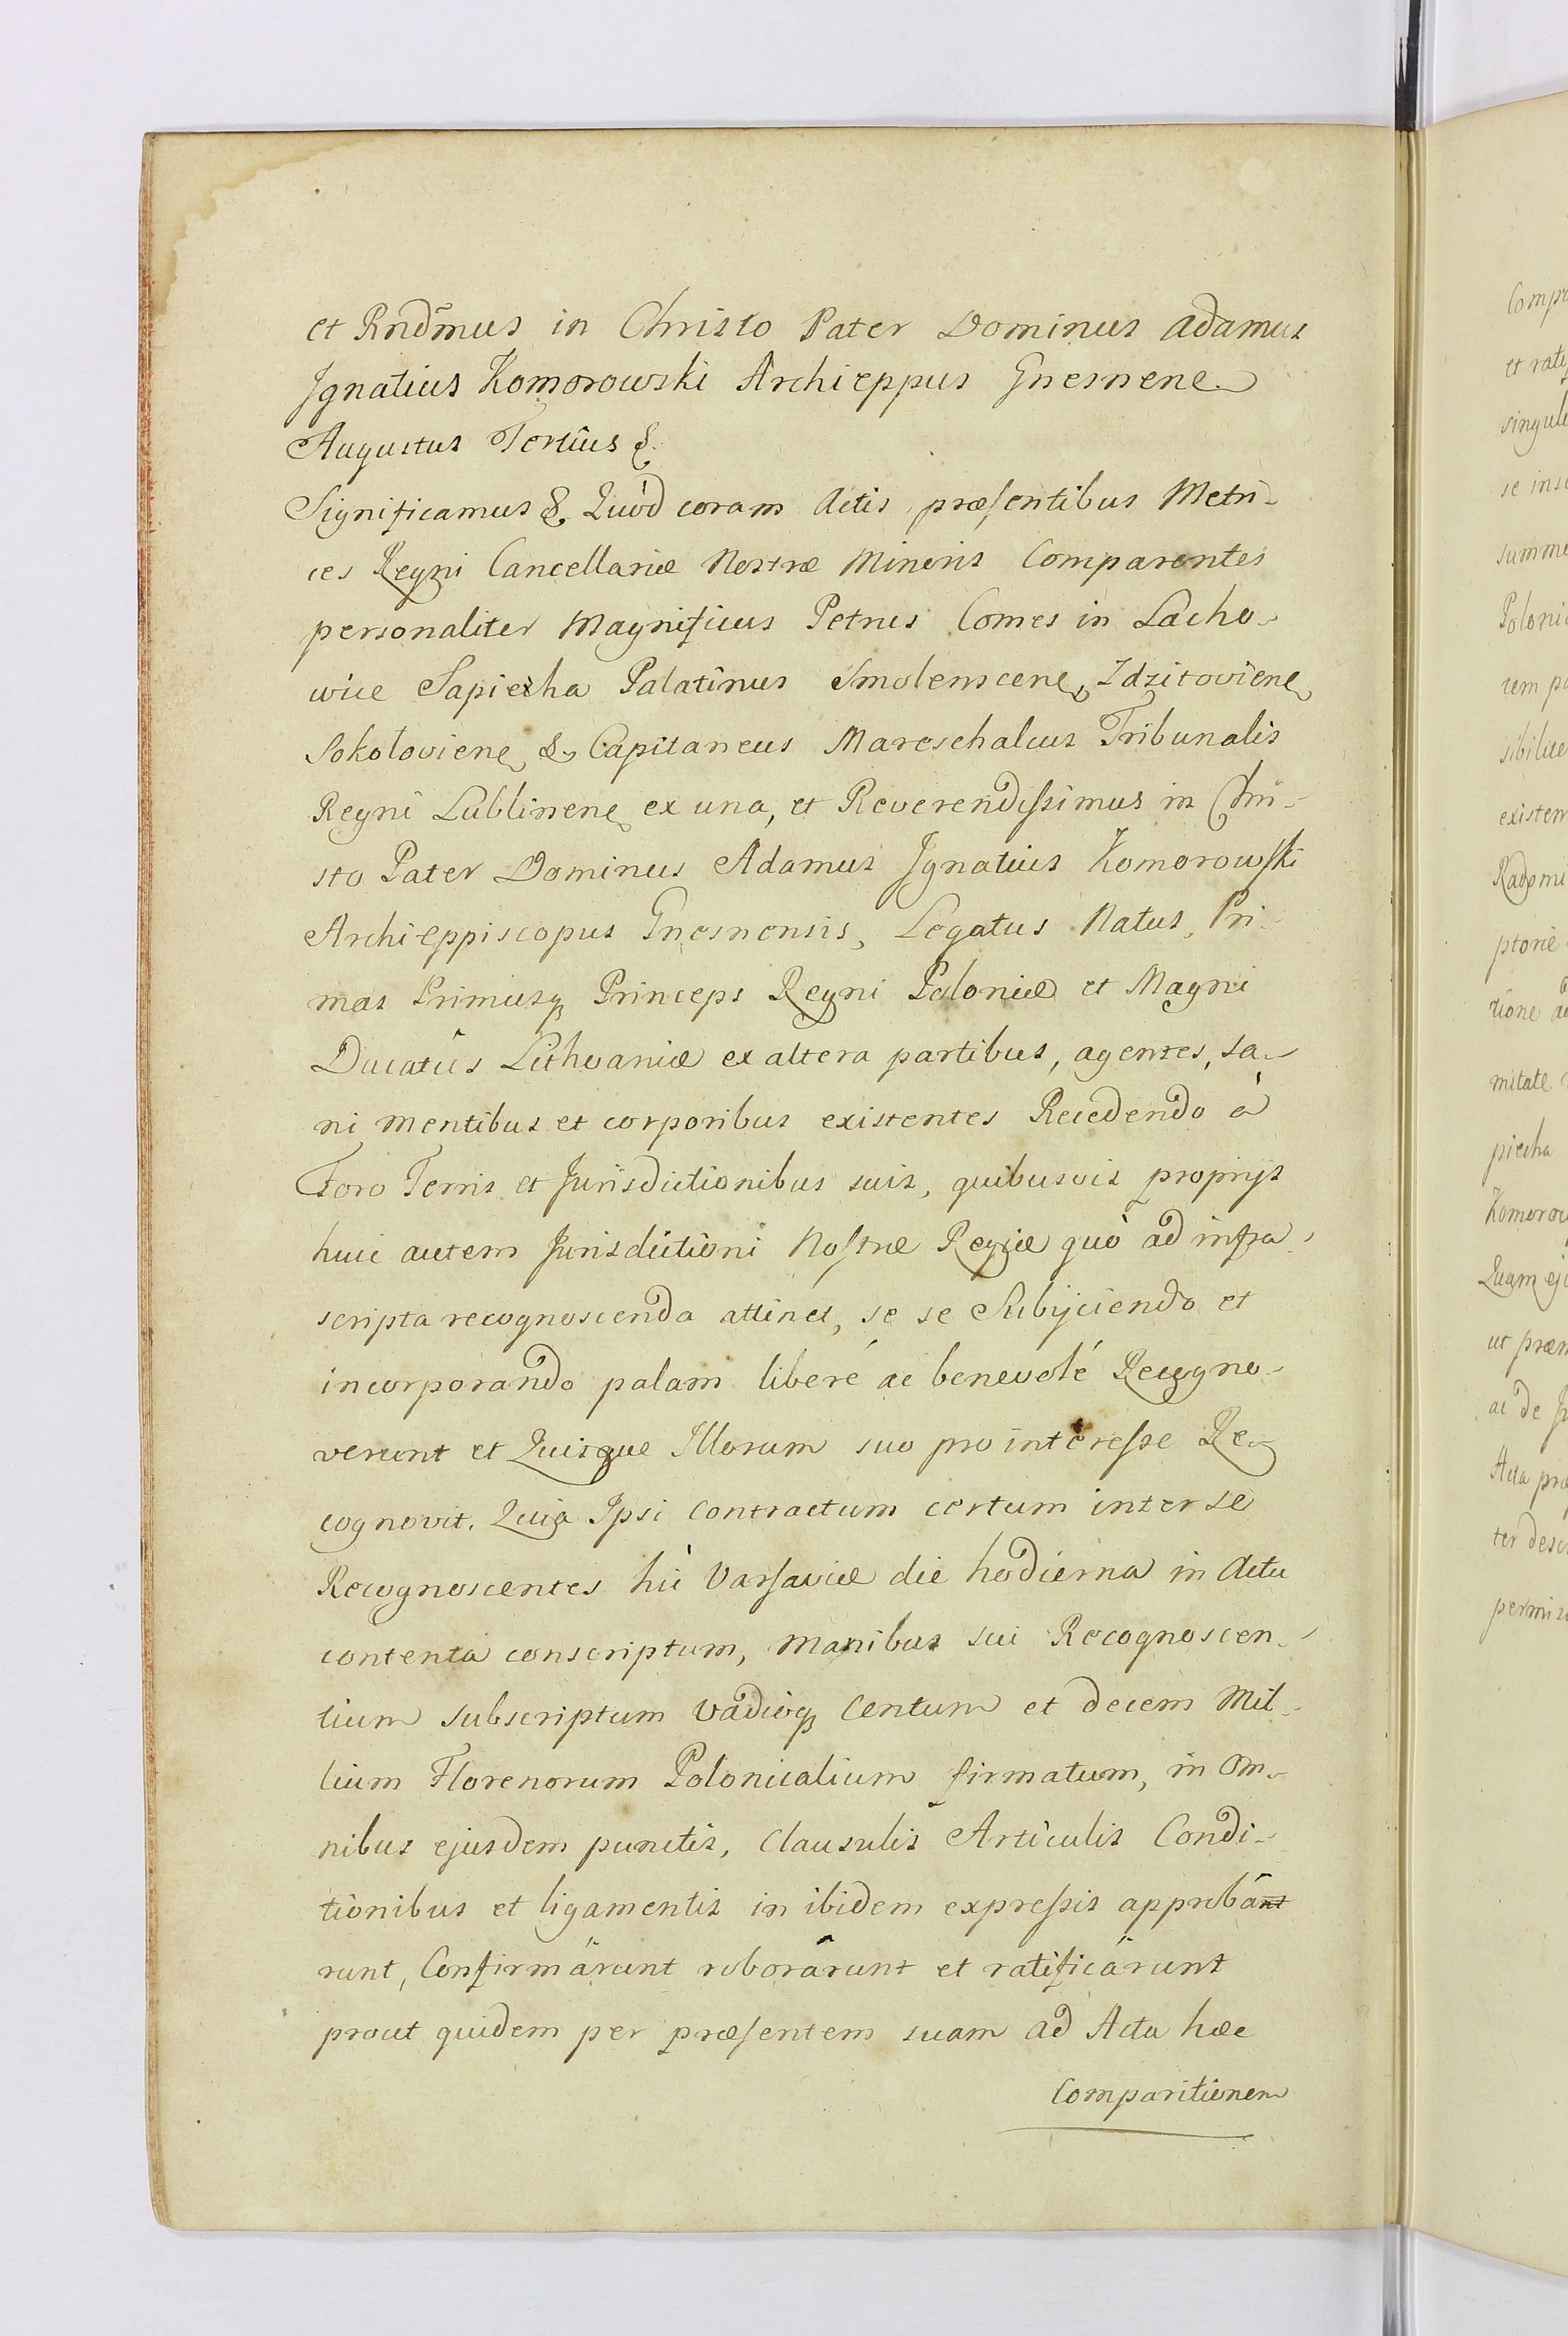 et Rndmus in Christo Pater Dominus Adamus
Ignatius Komorowski Archieppus Gnesnene
Augustus Tertius &
Significamus & Quòd coram Actis præsentibus Metri-
ces Regni Cancellariæ Nostræ Minoris Comparentes
personaliter Magnificus Petrus Comes in Lacho-
wice Sapieha Palatinus Smolenscene, Zdzitoviene
Sokołoviene & Capitaneus Mareschalcus Tribunalis
Regni Lublinene ex una, et Reverendissimus in Chri-
sto Pater Dominus Adamus Ignatius Komorowski
Archieppiscopus Gnesnensis, Legatus Natus, Pri-
mas Primusq Princeps Regni Poloniæ et Magni
Ducatûs Lithvaniæ ex altera partibus, agentes, sa-
ni mentibus et corporibus existentes Recedendo à
Foro Terris et Jurisdictionibus suis, quibusvis proprijs
huic autem Jurisdictioni Nostræ Regiæ quò ad infra
scripta recognoscenda attinet, se se Subijciendo et
incorporando palam liberé ac benevolé Recogno-
verunt et Quisque Illorum suo pro interesse Re-
cognovit. Quia Ipsi contractum certum inter se
Recognoscentes hìc Varsaviæ die hodierna in Actu
contenta conscriptum, manibus sui Recognoscen-
tium subscriptum vadioq Centum et decem Mil-
lium Florenorum Polonicalium firmatum, in Om-
nibus ejusdem punctis, Clausulis Articulis Condi-
tionibus et ligamentis in ibidem expressis approbânt
runt, Confirmârunt roborârunt et ratificârunt
prout quidem per præsentem suam ad Acta hæc
Comparitionem
Compa
et rati
singul
se ins
summe
Poloni
tem pa
sibilite
existen
Radomi
ptorie
tione a
mitate
piecha
Komorow
Quam ej
ut præm
ac de J
Acta præ
ter desc
permis